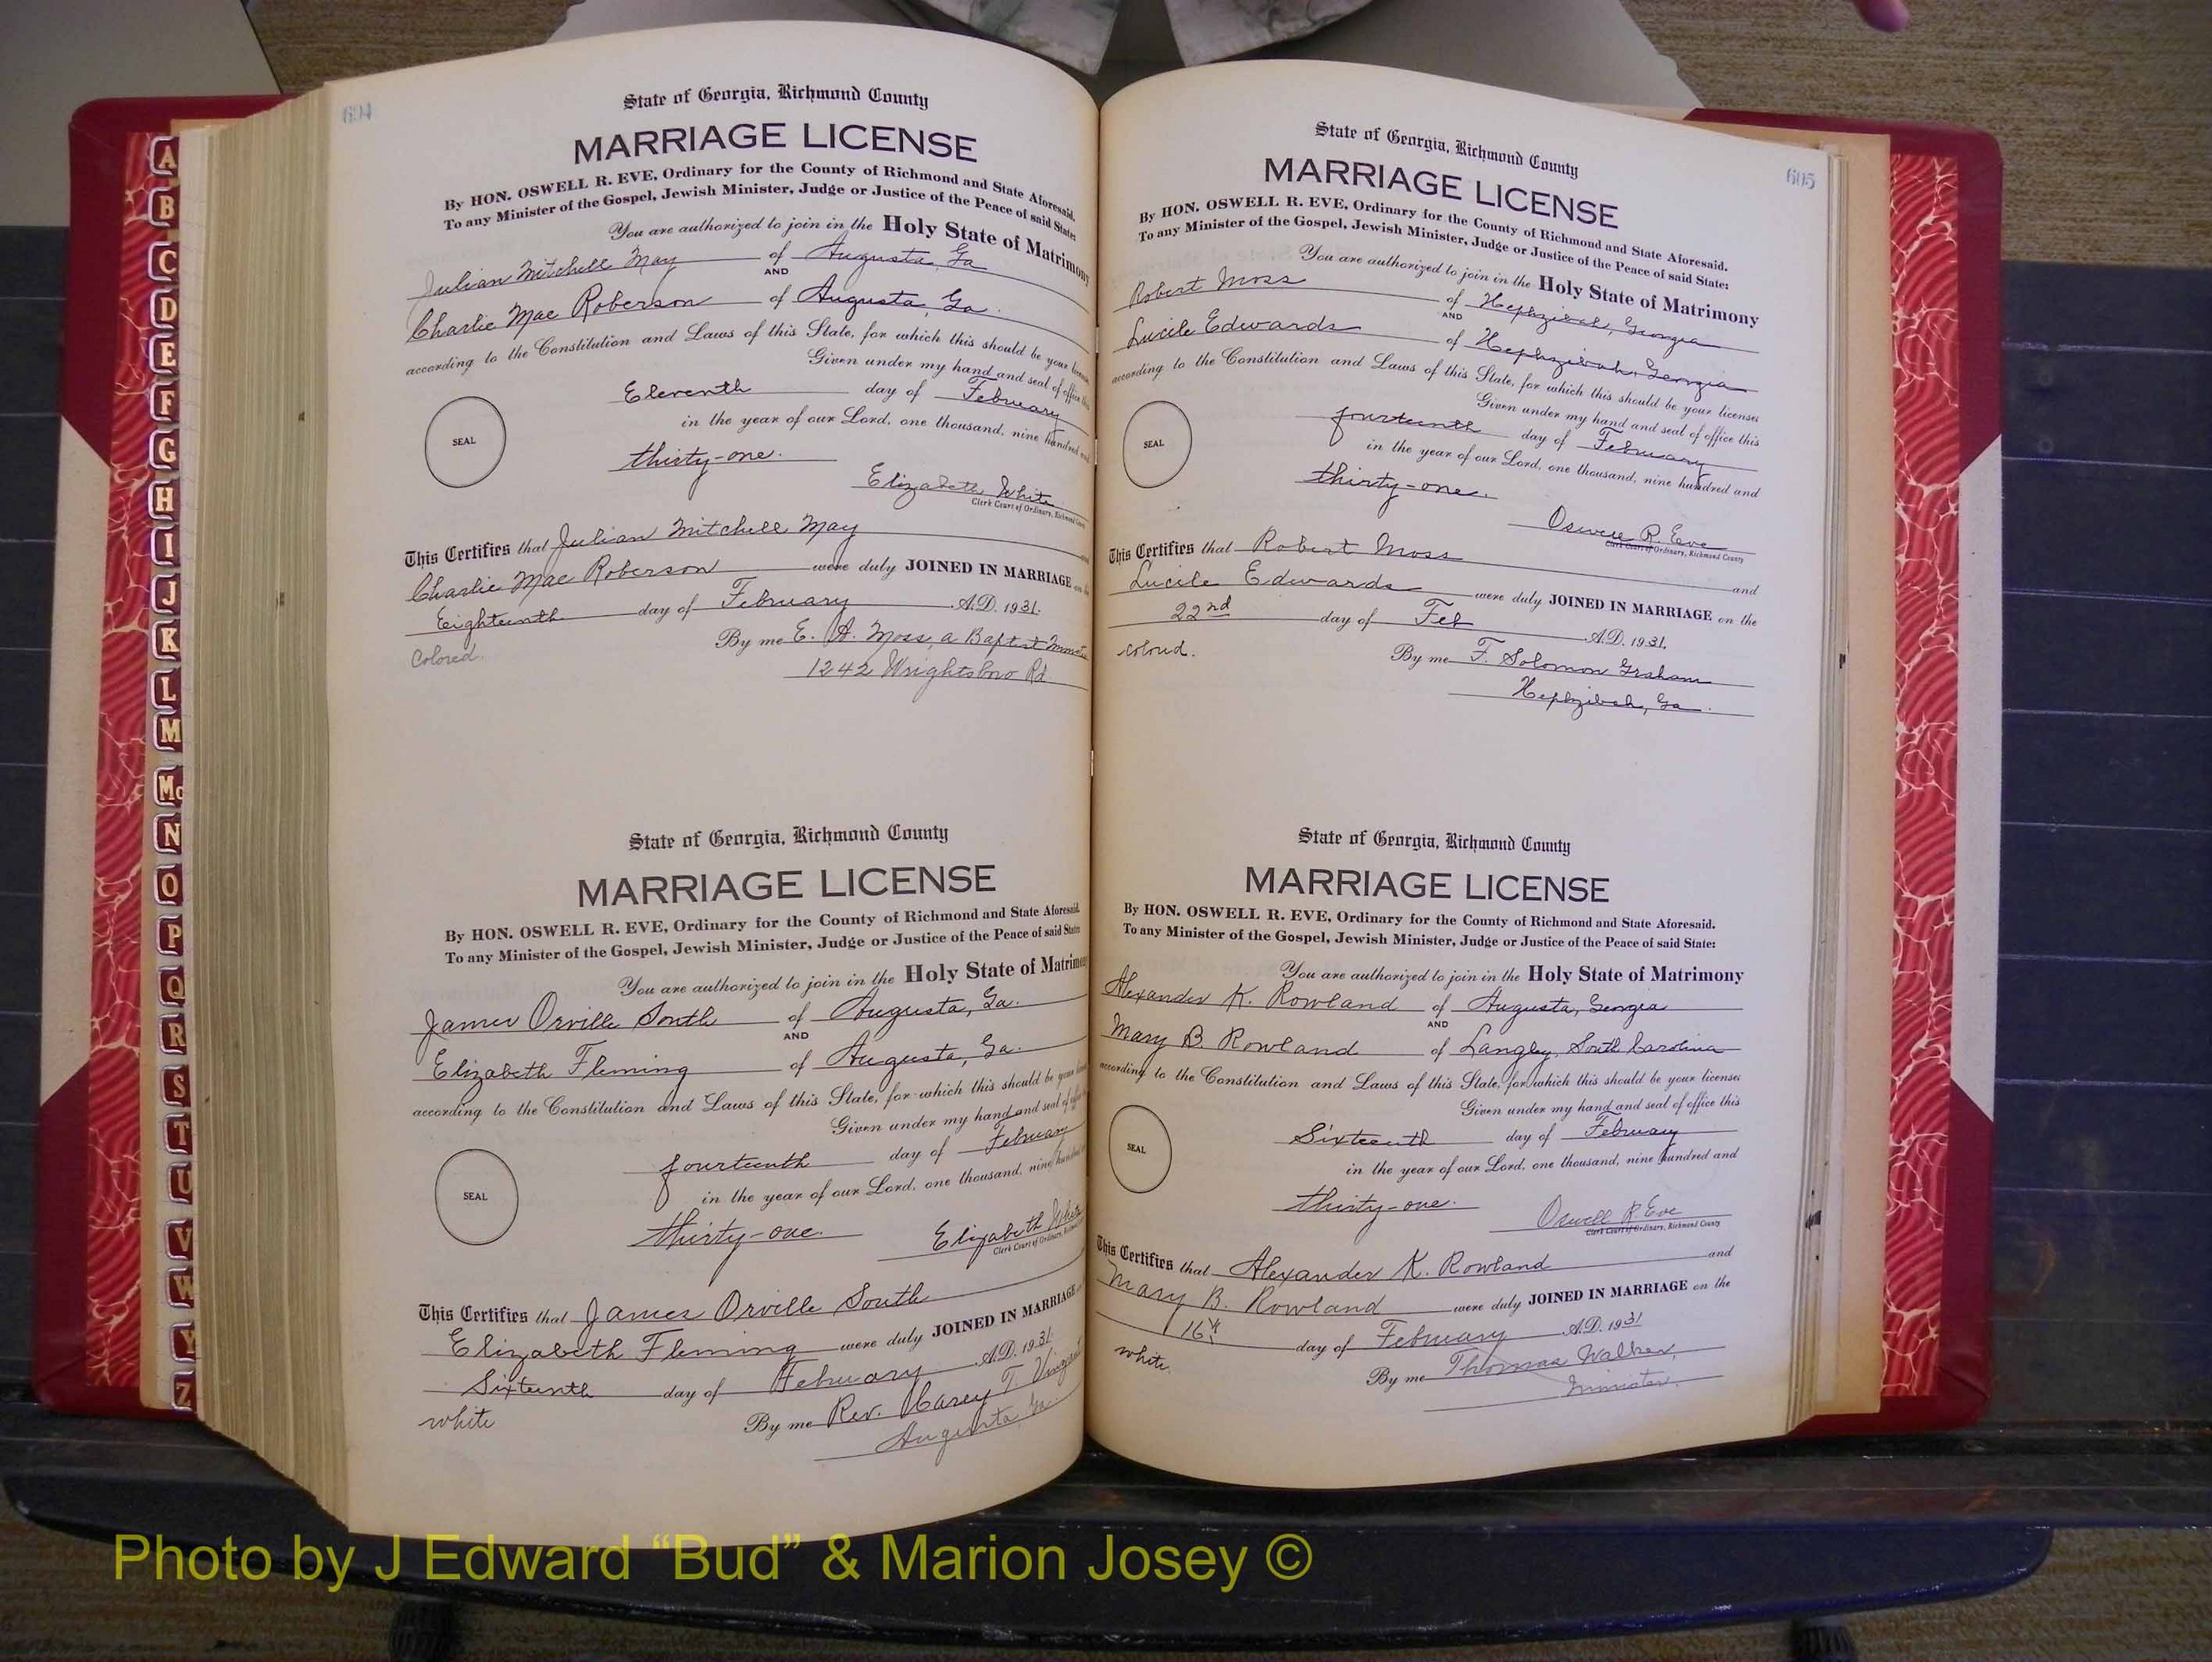 A
B
C
D
E
F
G
H
I
J
K
L
M
Mc
N
O
P
Q
R
S
T
U
V
W
Y
Z
694
State of Georgia, Richmond County
MARRIAGE LICENSE
By HON. OSWELL R. EVE, Ordinary for the County of Richmond and State Aforesaid.
To any Minister of the Gospel, Jewish Minister, Judge or Justice of the Peace of said State:
You are authorized to join in the Holy State of Matrimony
Julian Mitchell May of Augusta, Ga
AND
Charlie Mae Roberson of Augusta, Ga.
according to the Constitution and Laws of this State, for which this should be your
Given under my hand and seal of office this
Eleventh day of February
in the year of our Lord, one thousand, nine hundred and
SEAL
thirty-one.
Elizabeth White
Clerk Court of Ordinary, Richmond
This Certifies that Julian Mitchell May
Charlie Mae Roberson were duly JOINED IN MARRIAGE on
Eighteenth day of February A.D. 1931.
Colored. By me E. A. Moss, a Baptist
1242 Wrightsboro Rd.
State of Georgia, Richmond County
MARRIAGE LICENSE
By HON. OSWELL R. EVE, Ordinary for the County of Richmond and State Aforesaid.
To any Minister of the Gospel, Jewish Minister, Judge or Justice of the Peace of said State:
You are authorized to join in the Holy State of Matrimony
James Orville South of Augusta, Ga.
AND
Elizabeth Fleming of Augusta, Ga.
according to the Constitution and Laws of this State, for which this should be your
Given under my hand and seal of
fourteenth day of February
in the year of our Lord, one thousand, nine hundred
SEAL
thirty-one.
Elizabeth White
Clerk Court of Ordinary, Richmond
This Certifies that James Orville South
Elizabeth Fleming were duly JOINED IN MARRIAGE
Sixteenth day of February A.D. 1931.
white By me Rev. Casey T.
Augusta Ga.
605
State of Georgia, Richmond County
MARRIAGE LICENSE
By HON. OSWELL R. EVE, Ordinary for the County of Richmond and State Aforesaid.
To any Minister of the Gospel, Jewish Minister, Judge or Justice of the Peace of said State:
You are authorized to join in the Holy State of Matrimony
Robert Moss of Hephzibah, Georgia
AND
Lucile Edwards of Hephzibah, Georgia
according to the Constitution and Laws of this State, for which this should be your licenses
Given under my hand and seal of office this
fourteenth day of February
in the year of our Lord, one thousand, nine hundred and
SEAL
thirty-one.
Oswell R. Eve
Clerk Court of Ordinary, Richmond County
This Certifies that Robert Moss and
Lucile Edwards were duly JOINED IN MARRIAGE on the
22nd day of Feb A.D. 1931.
colored. By me F. Solomon Graham
Hephzibah, Ga.
State of Georgia, Richmond County
MARRIAGE LICENSE
By HON. OSWELL R. EVE, Ordinary for the County of Richmond and State Aforesaid.
To any Minister of the Gospel, Jewish Minister, Judge or Justice of the Peace of said State:
You are authorized to join in the Holy State of Matrimony
Alexander K. Rowland of Augusta, Georgia
AND
Mary B. Rowland of Langley, South Carolina
according to the Constitution and Laws of this State, for which this should be your licenses
Given under my hand and seal of office this
Sixteenth day of February
in the year of our Lord, one thousand, nine hundred and
SEAL
thirty-one.
Oswell R Eve
Clerk Court of Ordinary, Richmond County
This Certifies that Alexander K. Rowland and
Mary B. Rowland were duly JOINED IN MARRIAGE on the
16th day of February A.D. 1931
white. By me Thomas Walker,
Minister.
Photo by J Edward “Bud” & Marion Josey ©